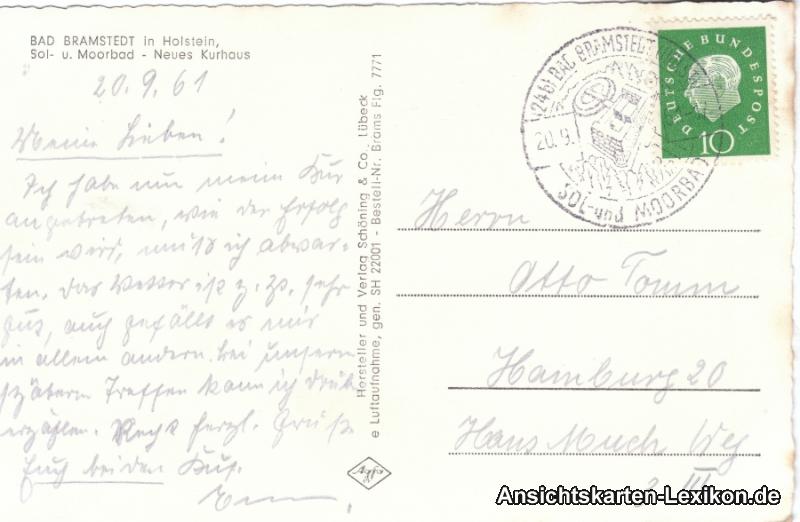 BAD BRAMSTEDT in Holstein,
Sol- u. Moorbad - Neues Kurhaus
20.9.61
Meine Lieben!
Ich habe nun meine Kur
angetreten, wie der Erfolg
sein wird, muß ich abwar-
ten. Das Wetter ist z. Zt. sehr
gut, auch gefällt es mir
in allem andern. Bei unserm
späterm Treffen kann ich
erzählen. Recht herzl. Grüße
Euch beiden
Hersteller und Verlag Schöning & Co., Lübeck
e Luftaufnahme, gen. SH 22001 - Bestell-Nr. Brams Flg. 7771
(24b) BAD BRAMSTEDT
20.9.
SOL- und MOORBAD
DEUTSCHE BUNDESPOST
10
Herrn
Otto Tomm
Hamburg 20
Hans Much Weg
III
Ansichtskarten-Lexikon.de